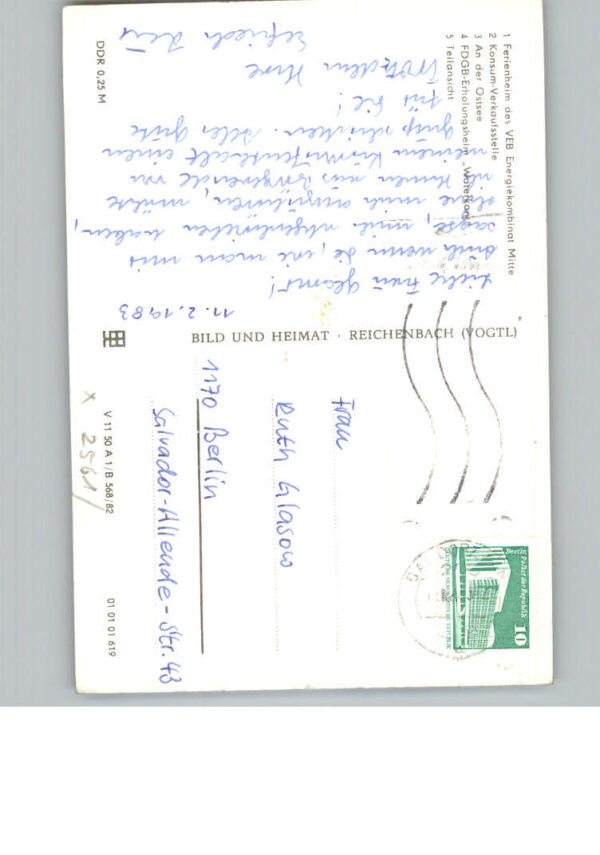 1 Ferienheim des VEB Energiekombinat Mitte
2 Konsum-Verkaufsstelle
3 An der Ostsee
4 FDGB-Erholungsheim „Waterkant"
5 Teilansicht
DDR 0,25 M
11.2.1983
Liebe Frau Glasow!
Auch wenn Sie, wie man mir
sagte, mich abgeschrieben haben,
ohne mich anzuhören, möchte
ich Ihnen aus von
meinem einen
Gruß schicken. Alles Gute
für Sie!
Trotzdem Ihre
BILD UND HEIMAT · REICHENBACH (VOGTL)
V 11 50 A 1/B 568/82
01 01 01 619
x 2561/
Frau
Ruth Glasow
1170 Berlin
Salvador-Allende-Str. 43
Berlin Palast der Republik
10